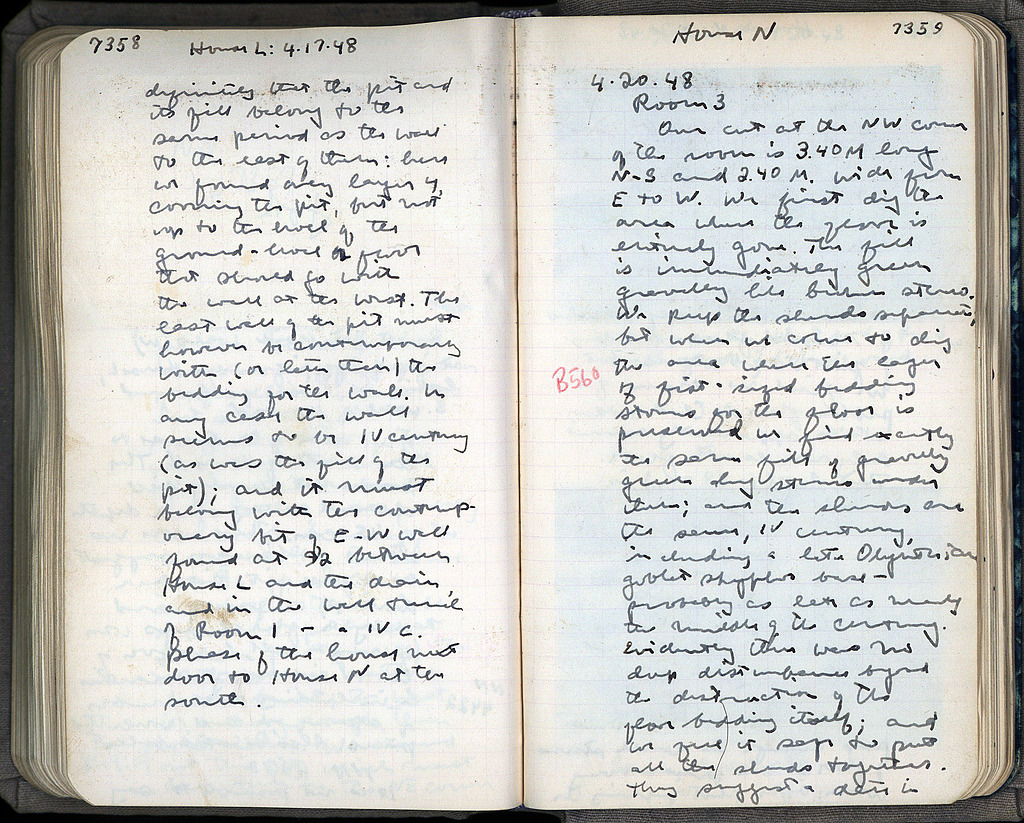 7358
House L: 4.17.48
definitely that the pit and
its fill belong to the
same period as the wall
to the east of them: here
we found only layer 4,
covering the pit, but not
up to the level of the
ground-level or floor
that should go with
the wall at the west. The
east wall of the pit must
however be contemporary
with (or later than) the
bedding for the wall. In
any case the wall
seems to be IV century
(as was the fill of the
pit); and it must
belong with the contemp-
orary bit of E-W wall
found at 92 between
House L and the drain
and in the wall
of Room 1 - a IV c.
phase of the house next
door to House N at the
south.
House N
7359
4.20.48
Room 3
Our cut at the NW corner
of the room is 3.40 M long
N-S and 2.40 M. wide from
E to W. We first dig the
area where the floor is
entirely gone. The fill
is immediately green
gravelly like broken stereo.
We keep the sherds separate,
but when we come to dig
the area where the layer
B560
of fist-sized bedding
stones for the floor is
preserved we find exactly
the same fill of gravelly
green dug stereo under
them; and the sherds are
the same, IV century,
including a late Olynthian
goblet base -
probably as late as nearly
the middle of the century.
Evidently there was no
deep disturbance beyond
the destruction of the
floor bedding itself; and
we feel it safe to put
all the sherds together.
They suggest a date in